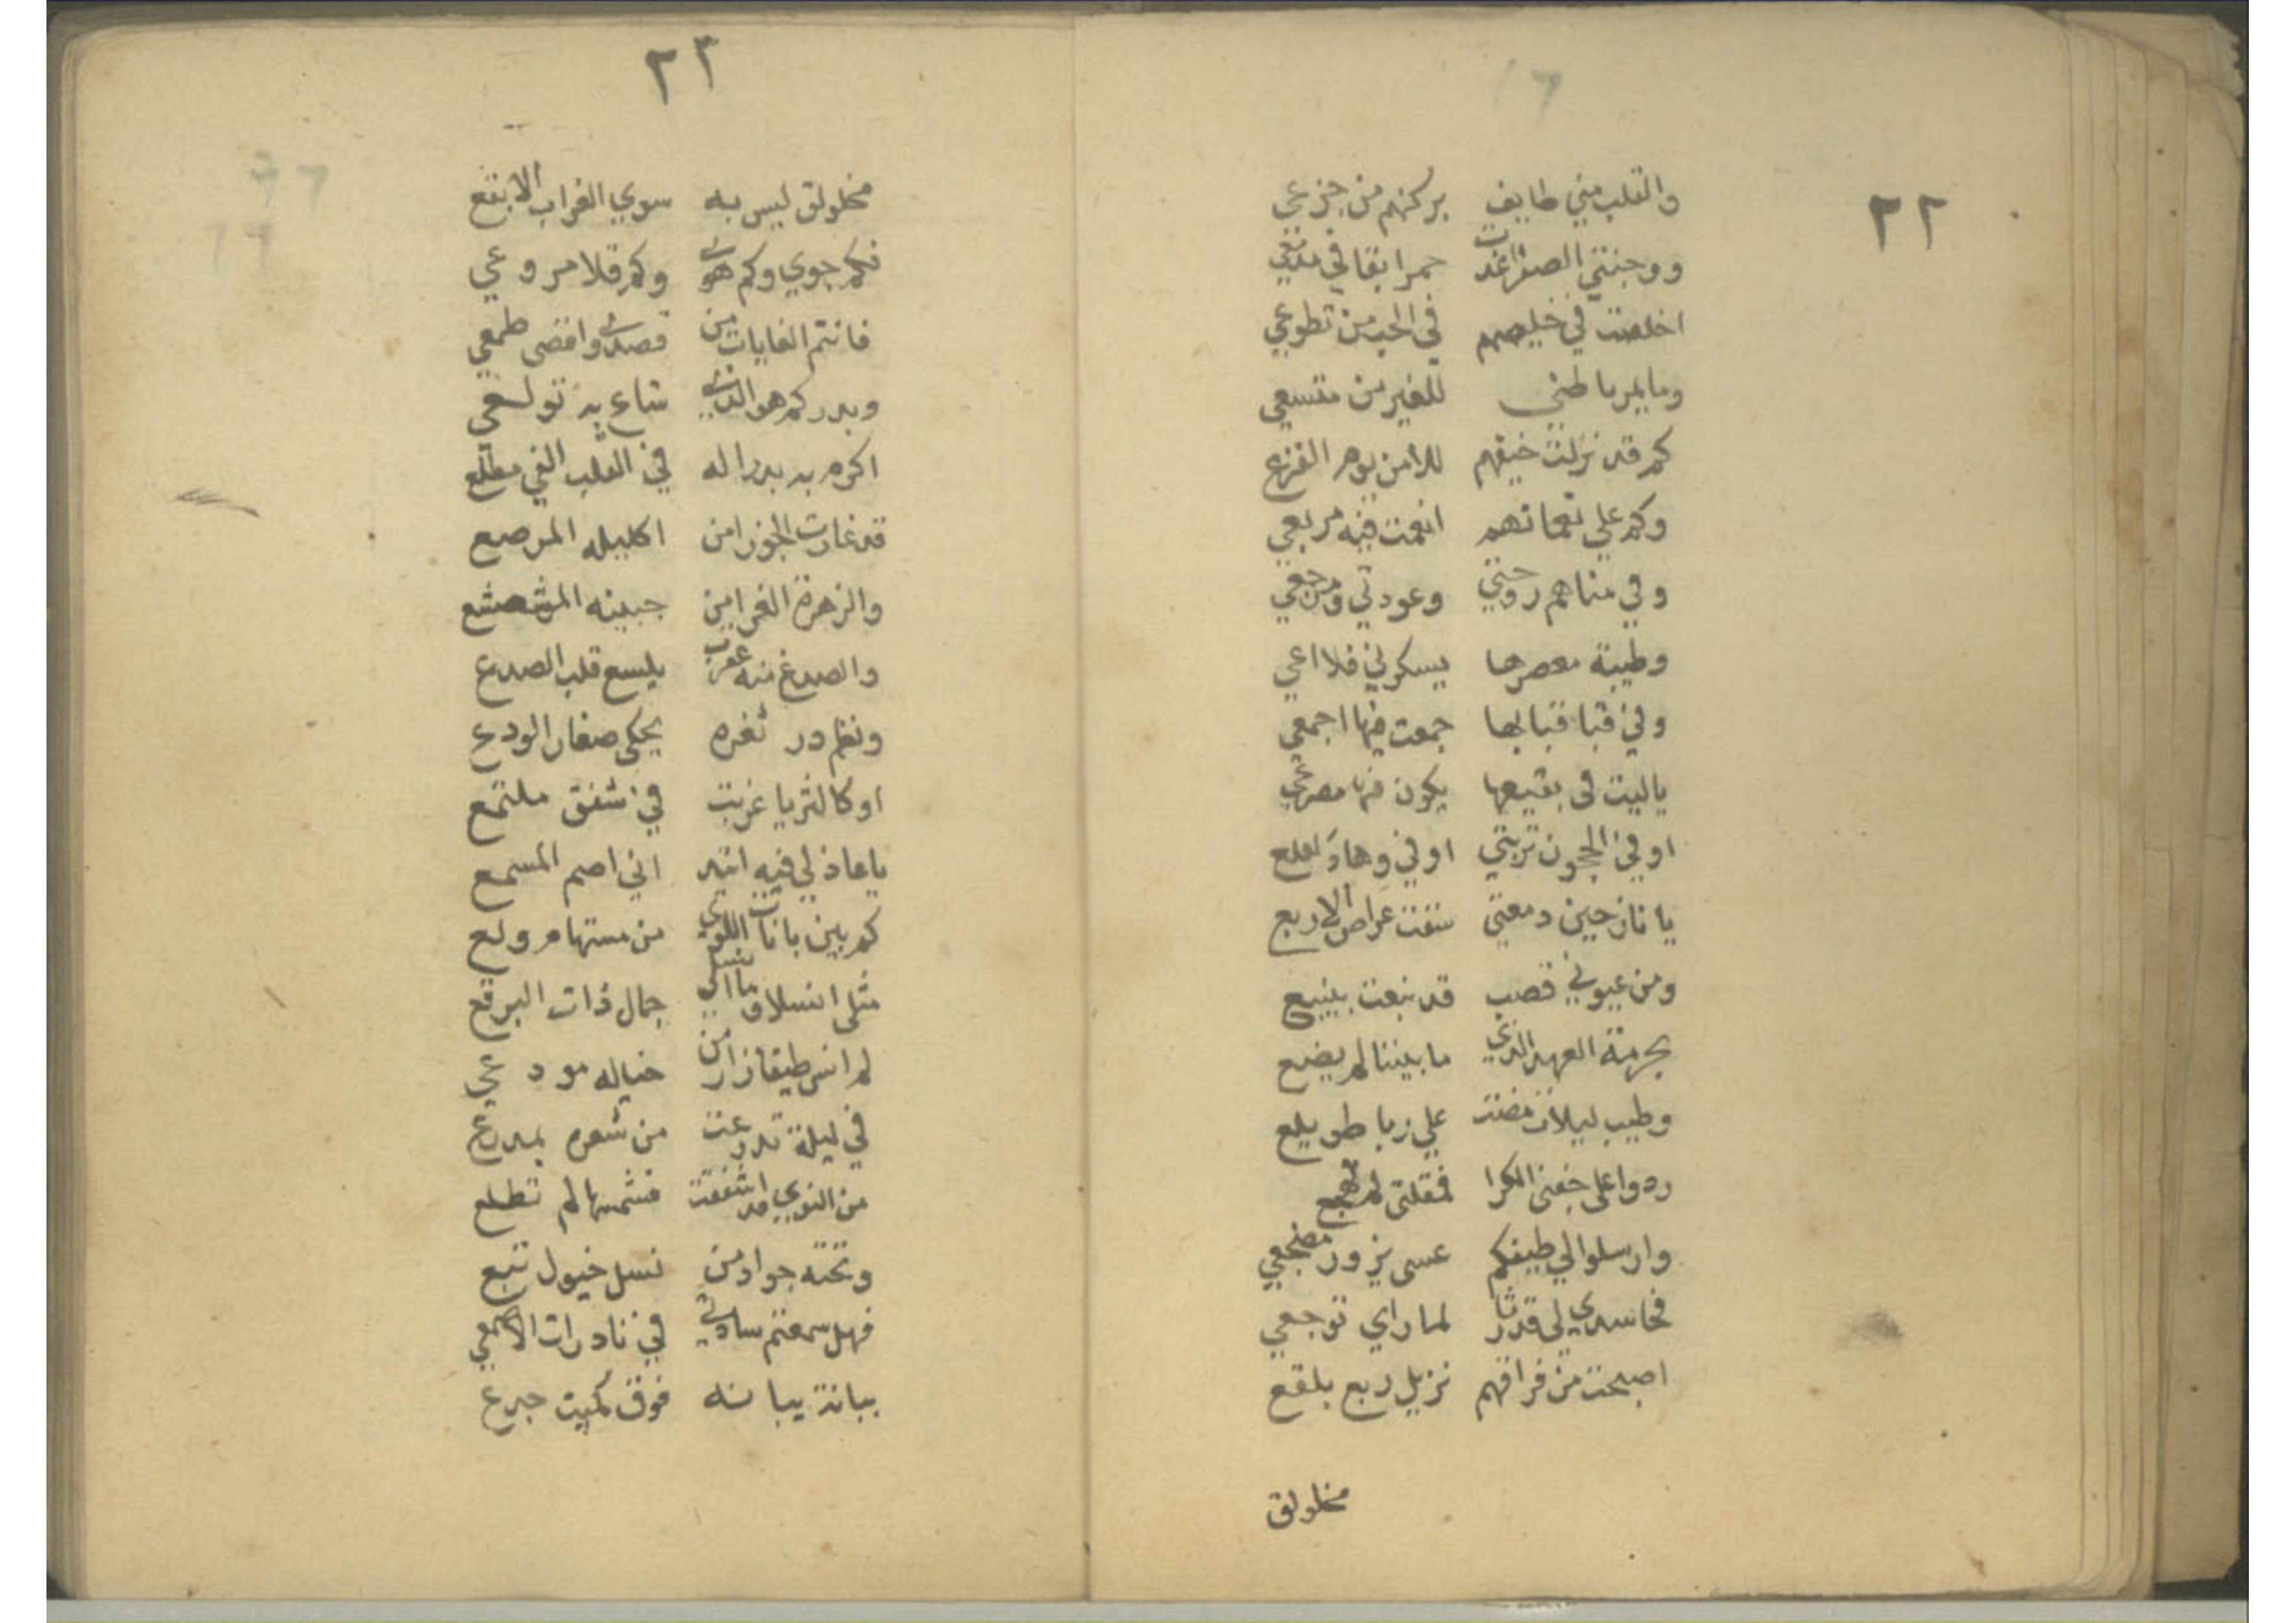 ٢٢
والقلب مني طايف بركنهم من جزعي
ووجنتي الصفرا غدت حمرا بقاني مدمعي
اخلصت في خليصهم في الحب من تطوعي
وما يمر باطني للغير من متسعي
كم قد نزلت خيفهم للأمن يوم الفزع
وكم علي نعمائهم انعمت فيه مربعي
وفي مناهم روحتي وعودتي ومرجعي
وطيبة معصرها يسكرني فلا اعي
وفي قبا قبابها جمعت فيها اجمعي
ياليت في بقيعها يكون فيها مصرعي
او في الحجون تربتي او في وهاد لعلع
يا نازحين دمعتي سقت عراص الاربع
ومن عيوني قصب قد نبعت بينبع
بحرمة العهد الذي ما بيننا لم يضع
وطيب ليلات مضت علي ربا طويلع
ردوا على جفني الكرا فمقلتي لم تهجع
وارسلوا لي طيفكم عسى يزور مضجعي
فحاسدي لي قد رثا لما راي توجعي
اصبحت من فراقهم نزيل ربع بلقع
مخلولق
٢٣
مخلولق ليس به سوي الغراب الابقع
فكم جوي وكم هوى وكم قلا مروعي
فانتم الغايات من قصدى واقصى طمعي
وبدركم هو الذي شاع به تولعي
اكرم به بدرا له في القلب الفي مطلع
قد غارت الجوزا من اكليله المرصع
والزهرة الغرا من جبينه المشعشع
والصدغ منه عقرب يلسع قلب الصدع
ونظم در ثغره يحكى صغار الودع
او كالثريا غربت في شفق ملتمع
يا عاذلي فيه اتئد اني اصم المسمع
كم بين بانات اللوي من مستهام ولع
مثلى انسلا ما انسلى جمال ذات البرقع
لم انس طيفا زار من خياله مودعي
في ليلة تدرعت من شعره بمدرع
من النوي قد اشفقت فشمسها لم تطلع
وتحته جواد من نسل خيول تبع
فهل سمعتم سادتي في نادرات الاصمعي
ببانة يبانه فوق كميت جرع